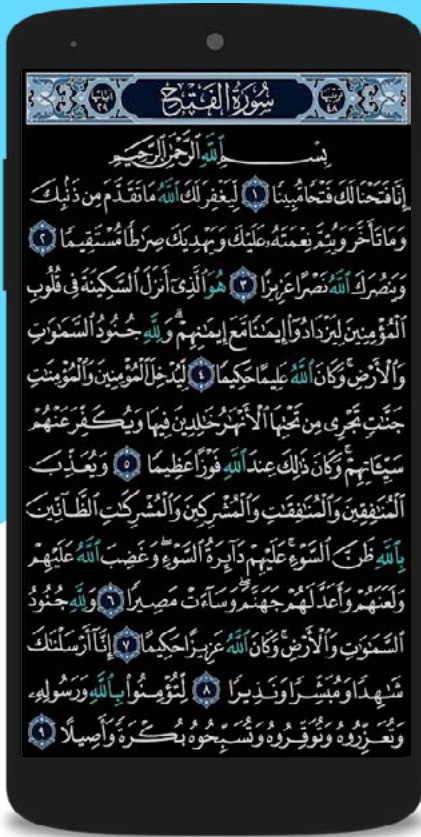 ترتيبها ٤٨ سُورَةُ الفَتْحِ آياتها ٢٩
بِسْمِ اللَّهِ الرَّحْمَٰنِ الرَّحِيمِ
إِنَّا فَتَحْنَا لَكَ فَتْحًا مُّبِينًا ١ لِّيَغْفِرَ لَكَ اللَّهُ مَا تَقَدَّمَ مِن ذَنۢبِكَ
وَمَا تَأَخَّرَ وَيُتِمَّ نِعْمَتَهُۥ عَلَيْكَ وَيَهْدِيَكَ صِرَٰطًا مُّسْتَقِيمًا ٢
وَيَنصُرَكَ ٱللَّهُ نَصْرًا عَزِيزًا ٣ هُوَ ٱلَّذِىٓ أَنزَلَ ٱلسَّكِينَةَ فِى قُلُوبِ
ٱلْمُؤْمِنِينَ لِيَزْدَادُوٓا۟ إِيمَـٰنًا مَّعَ إِيمَـٰنِهِمْ ۗ وَلِلَّهِ جُنُودُ ٱلسَّمَـٰوَٰتِ
وَٱلْأَرْضِ ۚ وَكَانَ ٱللَّهُ عَلِيمًا حَكِيمًا ٤ لِّيُدْخِلَ ٱلْمُؤْمِنِينَ وَٱلْمُؤْمِنَـٰتِ
جَنَّـٰتٍ تَجْرِى مِن تَحْتِهَا ٱلْأَنْهَـٰرُ خَـٰلِدِينَ فِيهَا وَيُكَفِّرَ عَنْهُمْ
سَيِّـَٔاتِهِمْ ۚ وَكَانَ ذَٰلِكَ عِندَ ٱللَّهِ فَوْزًا عَظِيمًا ٥ وَيُعَذِّبَ
ٱلْمُنَـٰفِقِينَ وَٱلْمُنَـٰفِقَـٰتِ وَٱلْمُشْرِكِينَ وَٱلْمُشْرِكَـٰتِ ٱلظَّآنِّينَ
بِٱللَّهِ ظَنَّ ٱلسَّوْءِ ۚ عَلَيْهِمْ دَآئِرَةُ ٱلسَّوْءِ ۖ وَغَضِبَ ٱللَّهُ عَلَيْهِمْ
وَلَعَنَهُمْ وَأَعَدَّ لَهُمْ جَهَنَّمَ ۖ وَسَآءَتْ مَصِيرًا ٦ وَلِلَّهِ جُنُودُ
ٱلسَّمَـٰوَٰتِ وَٱلْأَرْضِ ۚ وَكَانَ ٱللَّهُ عَزِيزًا حَكِيمًا ٧ إِنَّآ أَرْسَلْنَـٰكَ
شَـٰهِدًا وَمُبَشِّرًا وَنَذِيرًا ٨ لِّتُؤْمِنُوا۟ بِٱللَّهِ وَرَسُولِهِۦ
وَتُعَزِّرُوهُ وَتُوَقِّرُوهُ وَتُسَبِّحُوهُ بُكْرَةً وَأَصِيلًا ٩